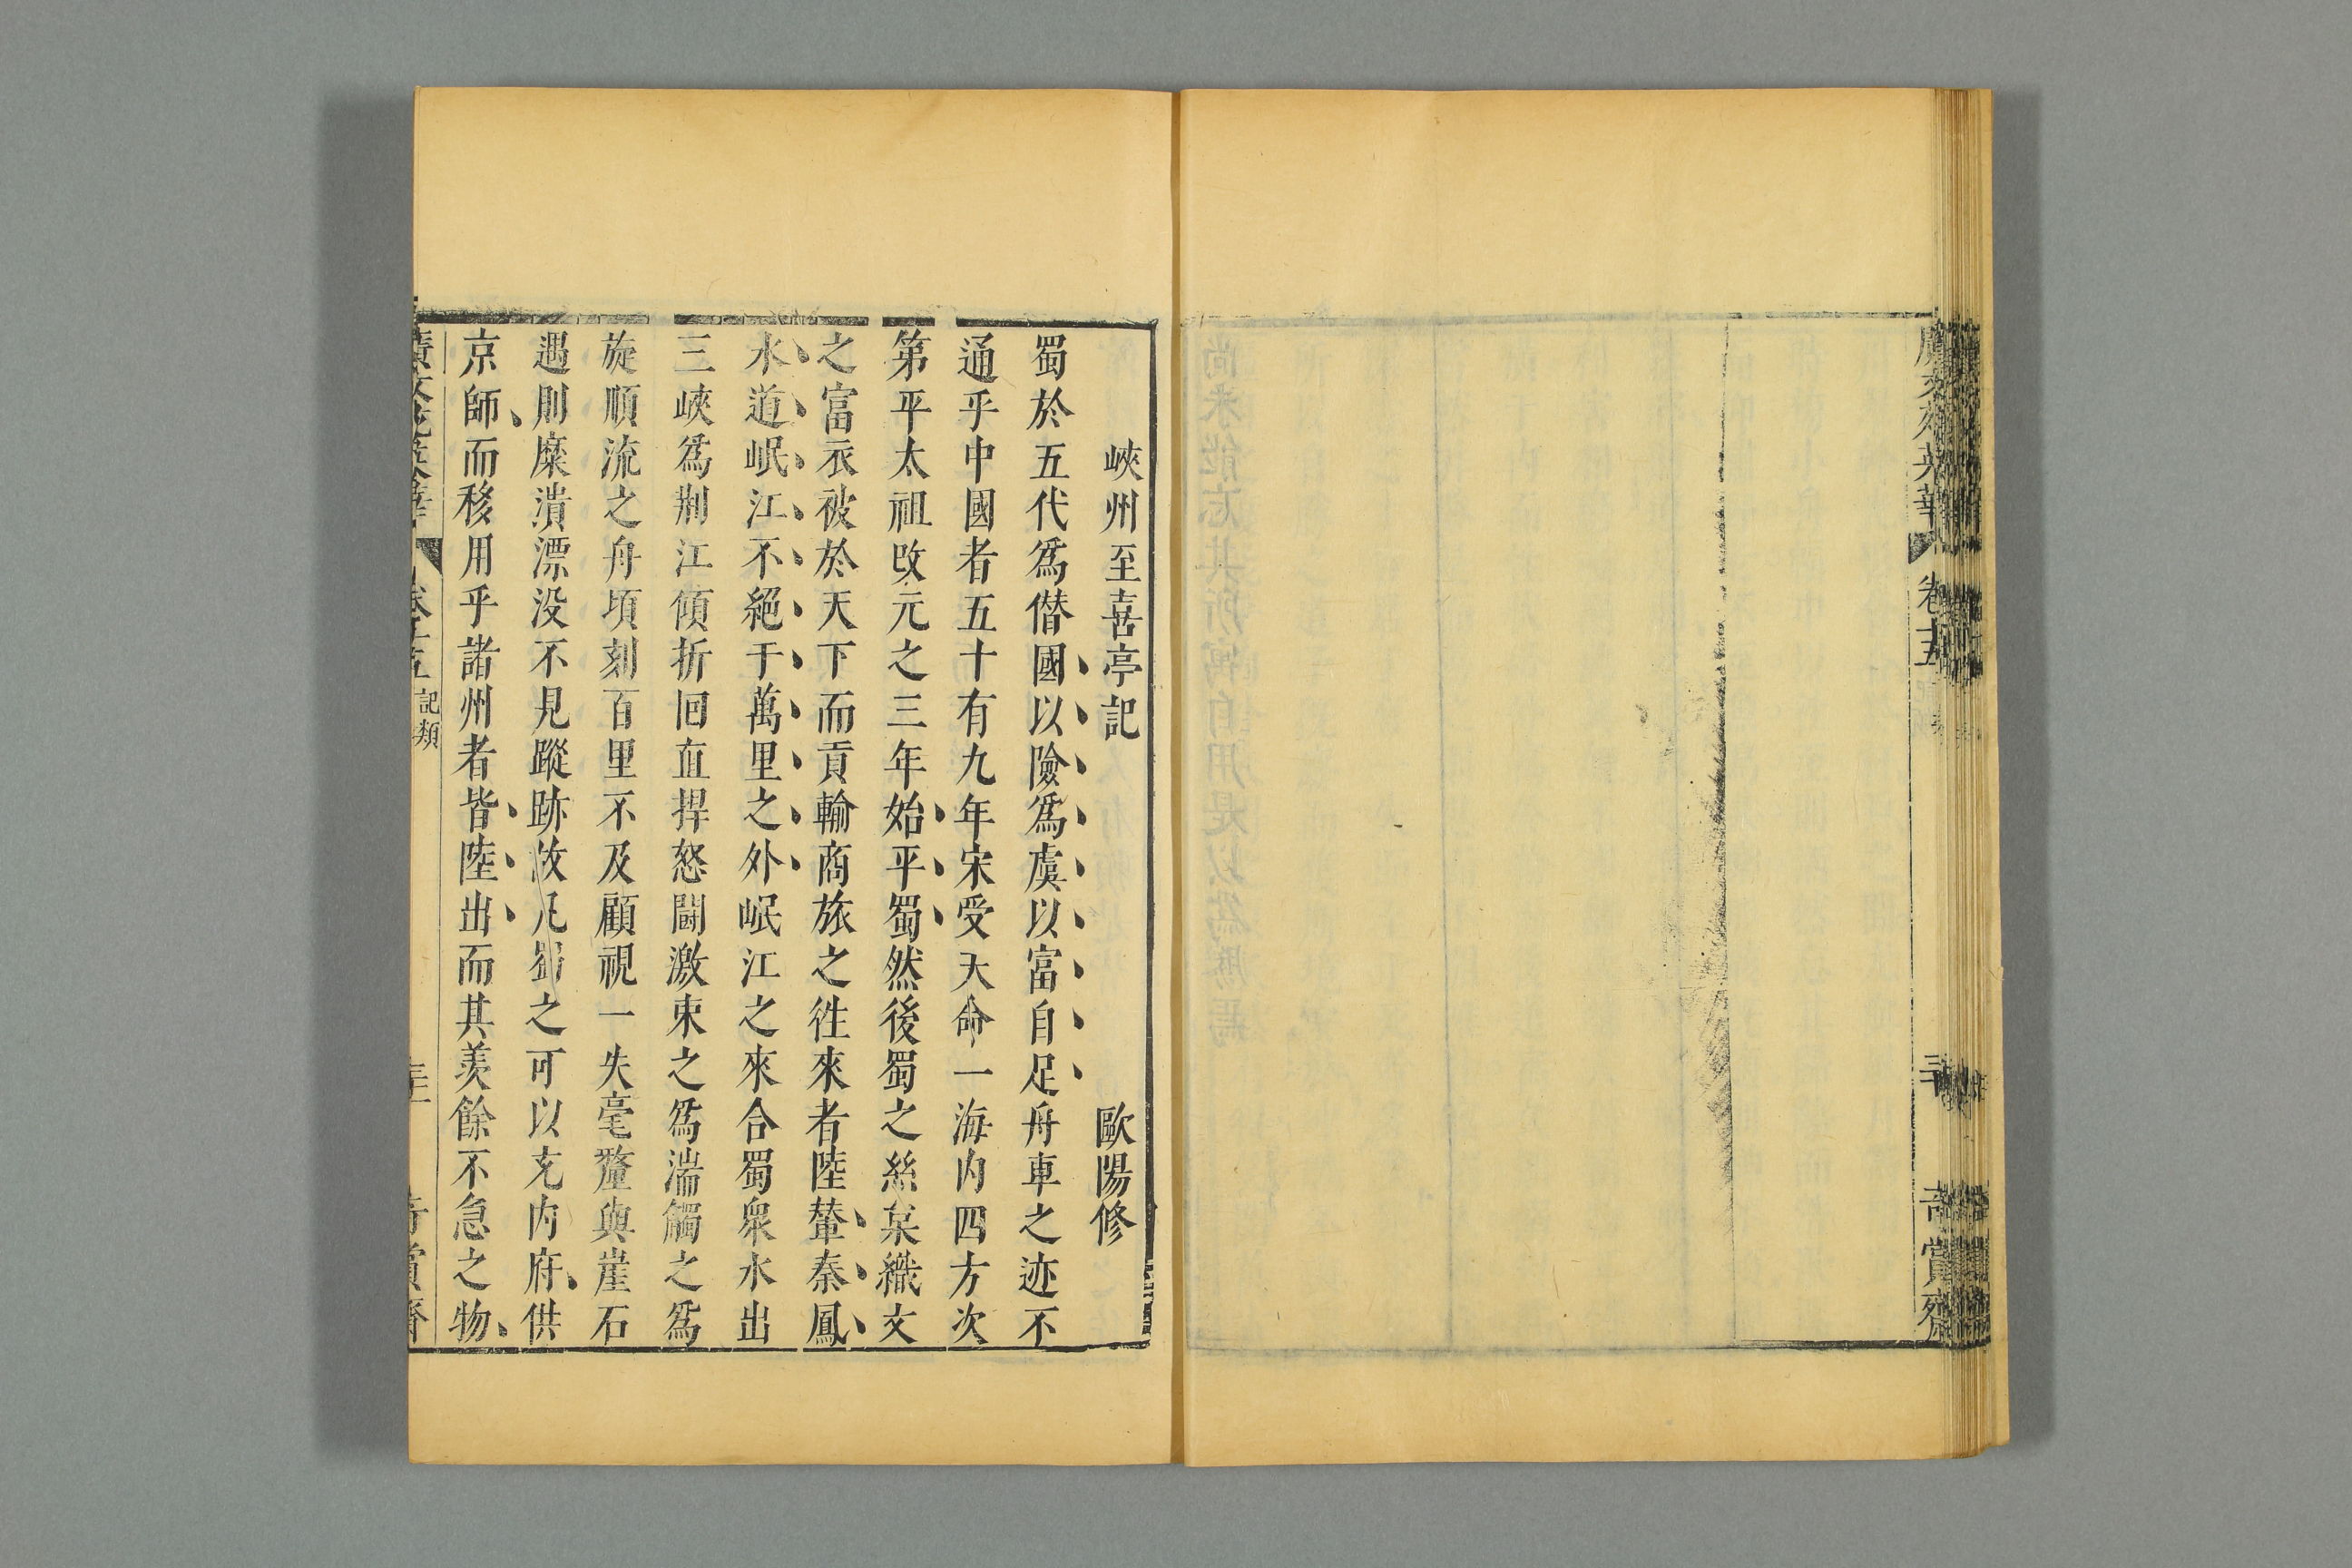 奇賞齋
峽州至喜亭記 歐陽修
蜀於五代爲僣國以險爲虞以富自足舟車之迹不
通乎中國者五十有九年宋受天命一海内四方次
第平太祖改元之三年始平蜀然後蜀之絲枲織文
之富衣被於天下而貢輸商旅之徃來者陸輦秦鳳
水道岷江不絕于萬里之外岷江之來合蜀衆水出
三峽爲荆江傾折回直捍怒鬭激束之爲湍觸之爲
旋順流之舟頃刻百里不及顧視一失毫釐與崖石
遇則糜潰漂没不見蹤跡故凡蜀之可以充内府供
京師而移用乎諸州者皆陸出而其羨餘不急之物
記類